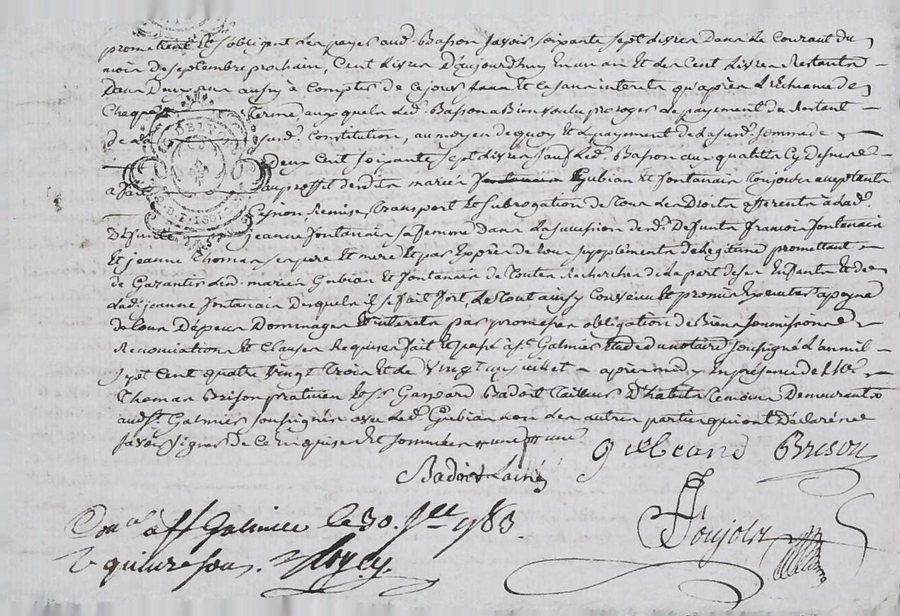 promettent et sobligent de payer aud. Basson Savoir soixante Sept Livres Dans Le Courant du
mois de septembre prochain, Cent Livres d'aujourdhuy En un an et de Cent Livres Restantes
Dans Deux ans aussy a Compter de ce jour Le tout sans interets qu'apres L'Echeance de
Chaque Terme auxquels Led. Basson a Bien voulu proroger Le payement du Restant
de La susd. Constitution, au moyen de quoy et du payement de La susd. Somme de
Deux Cent soixante Sept Livres Led. Basson aux qualittés Cy Dessus
a fait au proffit desdits mariés Gubian et Fontanais toujours acceptants
Cession, Remise, transport et subrogation de tous Les Droits afferents a Lad.
Defunte jeanne Fontanais sa femme Dans La succession de Defunts Francois Fontanais
Et jeanne Thomas ses pere et mere Et par Exprès de tous suppléments de Legitime promettant
de Garantir Lesd. mariés Gubian et Fontanais de toutes Recherches de La part de ses Enfants et de
Lad. jeanne Fontanais Desquels il se fait fort, Le tout ainsy Convenu et promis Executer a peyne
de tous Depens Dommages et interets par promesses obligation de Biens soumissions
Renonciations et Clauses Requises fait et passé a St. Galmier Etude du notaire soussigné L'an mil
Sept Cent quatre Vingt trois et Le Vingt juillet après midy En présence de Me.
Thomas Brison praticien et Sr. Gaspard Badoit Tailleur D'habits temoins Demeurants
aud. St. Galmier soussignés avec Led. Gubian non Les autres parties qui ont Déclaré ne
Savoir signer De Ce Enquises Et Sommées
Brison
Badoit Lainé
Con.lé a St Galmier le 30. 1783
quinze sous.
Poujols